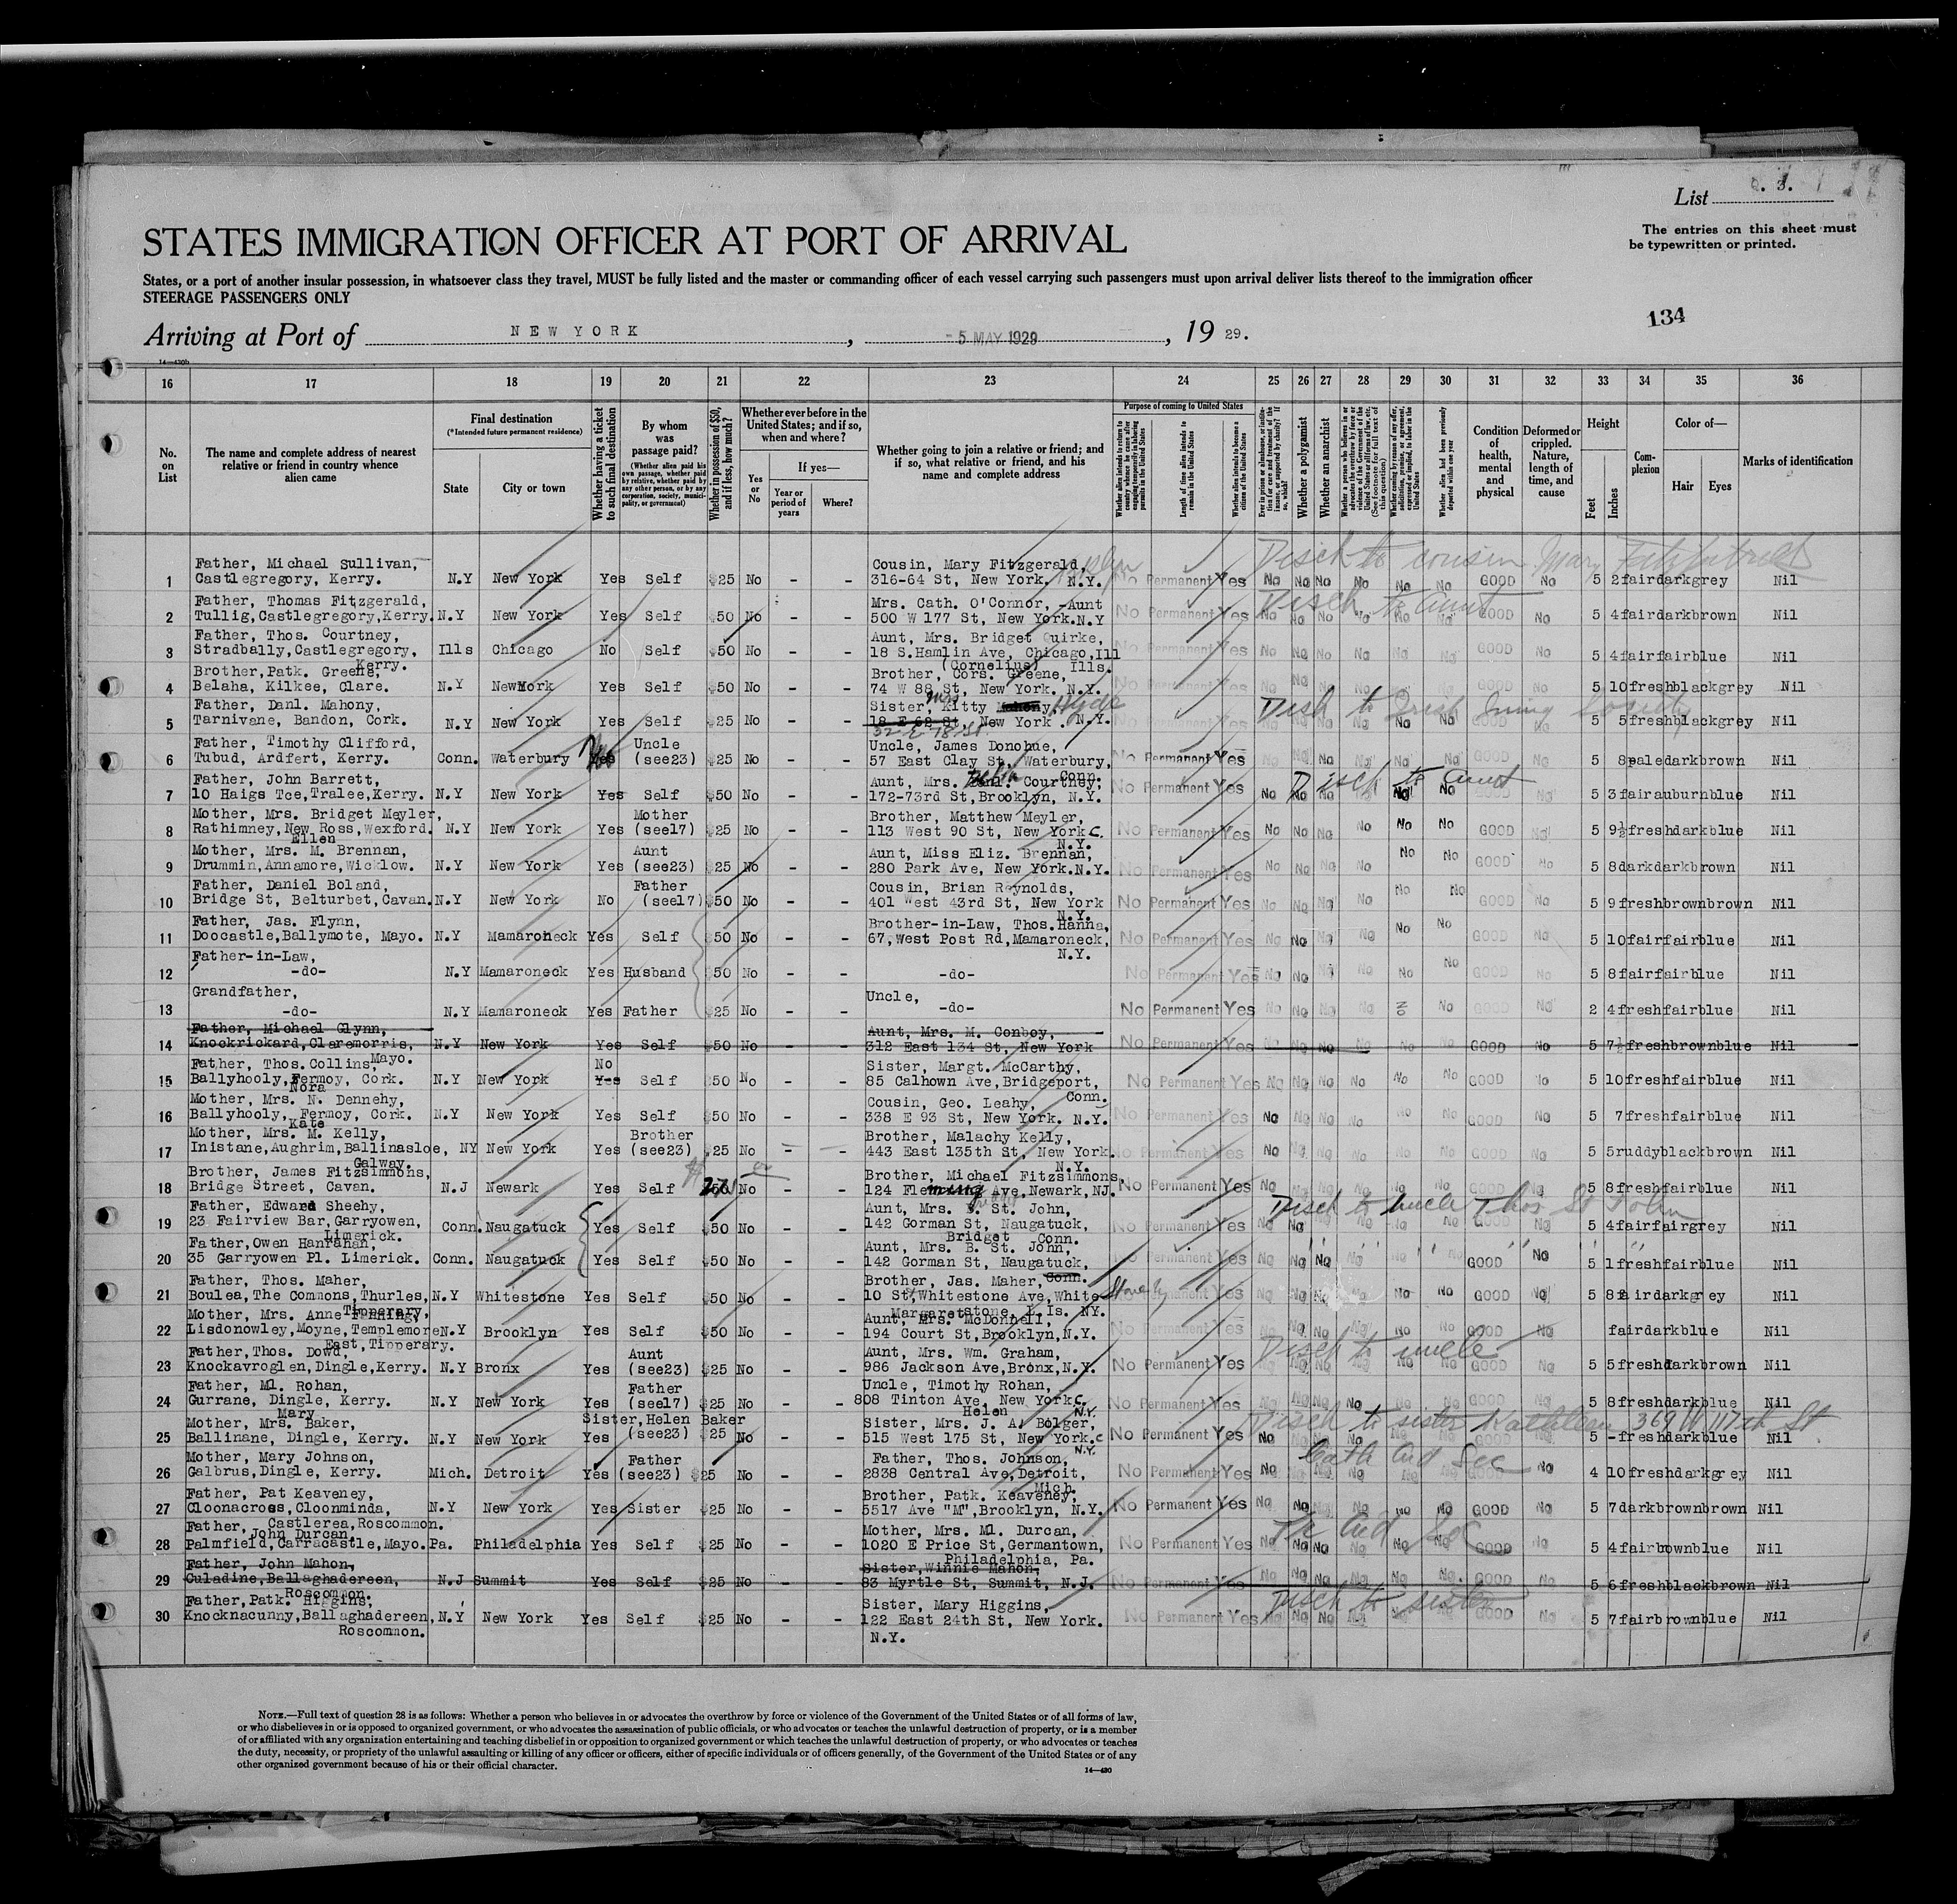 List 3.
The entries on this sheet must
be typewritten or printed.
STATES IMMIGRATION OFFICER AT PORT OF ARRIVAL
States, or a port of another insular possession, in whatsoever class they travel, MUST be fully listed and the master or commanding officer of each vessel carrying such passengers must upon arrival deliver lists thereof to the immigration officer
STEERAGE PASSENGERS ONLY
134
Arriving at Port of NEW YORK, -5 MAY 1929, 1929.
14—430b
16 17 18 19 20 21 22 23 24 25 26 27 28 29 30 31 32 33 34 35 36
No. on List
The name and complete address of nearest relative or friend in country whence alien came
Final destination
(*Intended future permanent residence)
State City or town
Whether having a ticket to such final destination
By whom was passage paid?
(Whether alien paid his own passage, whether paid by relative, whether paid by any other person, or by any corporation, society, municipality, or government)
Whether in possession of $50, and if less, how much?
Whether ever before in the United States; and if so, when and where?
Yes or No
If yes—
Year or period of years Where?
Whether going to join a relative or friend; and if so, what relative or friend, and his name and complete address
Purpose of coming to United States
Whether alien intends to return to country whence he came after engaging temporarily in laboring pursuits in the United States
Length of time alien intends to remain in the United States
Whether alien intends to become a citizen of the United States
Whether a polygamist
Whether an anarchist
Whether alien had been previously deported within one year
Condition of health, mental and physical
Deformed or crippled. Nature, length of time, and cause
Height
Feet Inches
Complexion
Color of—
Hair Eyes
Marks of identification
Disch to cousin Mary Fitzgerald
Father, Michael Sullivan, Cousin, Mary Fitzgerald,
1 Castlegregory, Kerry. N.Y New York Yes Self $25 No - - 316-64 St, New York. N.Y. No Permanent Yes No No No No No No GOOD No 5 2 fair dark grey Nil
Father, Thomas Fitzgerald, Mrs. Cath. O'Connor, -Aunt Disch to aunt
2 Tullig, Castlegregory, Kerry. N.Y New York Yes Self $50 No - - 500 W 177 St, New York. N.Y No Permanent Yes No No No No No No GOOD No 5 4 fair dark brown Nil
Father, Thos. Courtney, Aunt, Mrs. Bridget Quirke,
3 Stradbally, Castlegregory, Kerry. Ills Chicago No Self $50 No - - 18 S. Hamlin Ave, Chicago, Ill Ills. No Permanent Yes No No No No No No GOOD No 5 4 fair fair blue Nil
Brother, Patk. Greene, Brother, Cors. (Cornelius) Greene,
4 Belaha, Kilkee, Clare. N.Y New York Yes Self $50 No - - 74 W 88 St, New York. N.Y. No Permanent Yes No No No No No No GOOD No 5 10 fresh black grey Nil
Father, Danl. Mahony, Sister, Mrs Kitty Mahony, Hyde
5 Tarnivane, Bandon, Cork. N.Y New York Yes Self $25 No - - 18 E 62 St, New York. N.Y. 32 E 78 St. No Permanent Yes No No No No No No GOOD No 5 5 fresh black grey Nil
Father, Timothy Clifford, Uncle Uncle, James Donohue,
6 Tubud, Ardfert, Kerry. Conn. Waterbury Yes (see23) $25 No - - 57 East Clay St, Waterbury, Conn. No Permanent Yes No No No No No No GOOD No 5 8 pale dark brown Nil
Father, John Barrett, Aunt, Mrs. Courtney, Disch to aunt
7 10 Haigs Tce, Tralee, Kerry. N.Y New York Yes Self $50 No - - 172-73rd St, Brooklyn, N.Y. No Permanent Yes No No No No No No GOOD No 5 3 fair auburn blue Nil
Mother, Mrs. Bridget Meyler, Mother Brother, Matthew Meyler,
8 Rathimney, New Ross, Wexford. N.Y New York Yes (see17) $25 No - - 113 West 90 St, New York C. N.Y. No Permanent Yes No No No No No No GOOD No 5 9½ fresh dark blue Nil
Mother, Mrs. M. Ellen Brennan, Aunt Aunt, Miss Eliz. Brennan,
9 Drummin, Annamore, Wicklow. N.Y New York Yes (see23) $25 No - - 280 Park Ave, New York. N.Y. No Permanent Yes No No No No No No GOOD No 5 8 dark dark brown Nil
Father, Daniel Boland, Father Cousin, Brian Reynolds,
10 Bridge St, Belturbet, Cavan. N.Y New York No (see17) $50 No - - 401 West 43rd St, New York N.Y. No Permanent Yes No No No No No No GOOD No 5 9 fresh brown brown Nil
Father, Jas. Flynn, Brother-in-Law, Thos. Hanna,
11 Doocastle, Ballymote, Mayo. N.Y Mamaroneck Yes Self $50 No - - 67, West Post Rd, Mamaroneck, N.Y. No Permanent Yes No No No No No No GOOD No 5 10 fair fair blue Nil
Father-in-Law,
12 -do- N.Y Mamaroneck Yes Husband $50 No - - -do- No Permanent Yes No No No No No No GOOD No 5 8 fair fair blue Nil
Grandfather, Uncle,
13 -do- N.Y Mamaroneck Yes Father $25 No - - -do- No Permanent Yes No No No No No No GOOD No 2 4 fresh fair blue Nil
Father, Michael Glynn, Aunt, Mrs. M. Conboy,
14 Knockrickard, Claremorris, Mayo. N.Y New York Yes Self $50 No - - 312 East 134 St, New York No Permanent Yes No No No No No GOOD No 5 7½ fresh brown blue Nil
Father, Thos. Collins, No Sister, Margt. McCarthy,
15 Ballyhooly, Fermoy, Cork. N.Y New York Yes Self $50 No - - 85 Calhown Ave, Bridgeport, Conn. No Permanent Yes No No No No No No GOOD No 5 10 fresh fair blue Nil
Mother, Mrs. N. Nora Dennehy, Cousin, Geo. Leahy,
16 Ballyhooly, Fermoy, Cork. N.Y New York Yes Self $50 No - - 338 E 93 St, New York. N.Y. No Permanent Yes No No No No No No GOOD No 5 7 fresh fair blue Nil
Mother, Mrs. M. Kate Kelly, Brother Brother, Malachy Kelly,
17 Inistane, Aughrim, Ballinasloe, Galway. NY New York Yes (see23) $25 No - - 443 East 135th St, New York. N.Y. No Permanent Yes No No No No No No GOOD No 5 5 ruddy black brown Nil
Brother, James Fitzsimmons, Brother, Michael Fitzsimmons,
18 Bridge Street, Cavan. N.J Newark Yes Self No - - 124 Fleming Ave, Newark, NJ. No Permanent Yes No No No No No No GOOD No 5 8 fresh fair blue Nil
Father, Edward Sheehy, Aunt, Mrs. B. St. John, Disch to uncle Thos St John
19 23 Fairview Bar, Garryowen, Limerick. Conn. Naugatuck Yes Self $50 No - - 142 Gorman St, Naugatuck, Conn. No Permanent Yes No No No No No No GOOD No 5 4 fair fair grey Nil
Father, Owen Hanrahan, Aunt, Mrs. B. Bridget St. John,
20 35 Garryowen Pl. Limerick. Conn. Naugatuck Yes Self $50 No - - 142 Gorman St, Naugatuck, Conn. No Permanent Yes No No No No No No GOOD No 5 1 fresh fair blue Nil
Father, Thos. Maher, Brother, Jas. Maher,
21 Boulea, The Commons, Thurles, Tipperary. N.Y Whitestone Yes Self $50 No - - 10 St, Whitestone Ave, Whitestone, L. Is. NY. No Permanent Yes No No No No No No GOOD No 5 8 fair dark grey Nil
Mother, Mrs. Anne Fanning, Aunt, Mrs. Margaret McDonnell,
22 Lisdonowley, Moyne, Templemore East, Tipperary. N.Y Brooklyn Yes Self $50 No - - 194 Court St, Brooklyn, N.Y. No Permanent Yes No No No No No No GOOD No fair dark blue Nil
Father, Thos. Dowd, Aunt Aunt, Mrs. Wm. Graham, Disch to uncle
23 Knockavroglen, Dingle, Kerry. N.Y Bronx Yes (see23) $25 No - - 986 Jackson Ave, Bronx, N.Y. No Permanent Yes No No No No No No GOOD No 5 5 fresh dark brown Nil
Father, Ml. Rohan, Father Uncle, Timothy Rohan,
24 Gurrane, Dingle, Kerry. N.Y New York Yes (see17) $25 No - - 808 Tinton Ave, New York C. N.Y. No Permanent Yes No No No No No No GOOD No 5 8 fresh dark blue Nil
Mother, Mrs. Mary Baker, Sister, Helen Baker Sister, Mrs. J. A. Helen Bolger, Disch to sister Kathleen 369 W 117th St
25 Ballinane, Dingle, Kerry. N.Y New York Yes (see23) $25 No - - 515 West 175 St, New York. C N.Y. No Permanent Yes No No No No No No GOOD No 5 - fresh dark blue Nil
Mother, Mary Johnson, Father Father, Thos. Johnson, Cath Aid Soc
26 Galbrus, Dingle, Kerry. Mich. Detroit Yes (see23) $25 No - - 2838 Central Ave, Detroit, Mich. No Permanent Yes No No No No No No GOOD No 4 10 fresh dark grey Nil
Father, Pat Keaveney, Brother, Patk. Keaveney,
27 Cloonacross, Cloonminda, Castlerea, Roscommon. N.Y New York Yes Sister $25 No - - 5517 Ave "M", Brooklyn, N.Y. No Permanent Yes No No No No No No GOOD No 5 7 dark brown brown Nil
Father, John Durcan, Mother, Mrs. Ml. Durcan, Aid Soc
28 Palmfield, Carracastle, Mayo. Pa. Philadelphia Yes Self $25 No - - 1020 E Price St, Germantown, Philadelphia, Pa. No Permanent Yes No No No No No No GOOD No 5 4 fair brown blue Nil
Father, John Mahon, Sister, Winnie Mahon,
29 Culadine, Ballaghadereen, Roscommon. N.J Summit Yes Self $25 No - - 83 Myrtle St, Summit, N.J. No Permanent Yes No No No No No No GOOD No 5 6 fresh black brown Nil
Father, Patk. Higgins, Sister, Mary Higgins, Disch to sister
30 Knocknacunny, Ballaghadereen, Roscommon. N.Y New York Yes Self $25 No - - 122 East 24th St, New York. N.Y. No Permanent Yes No No No No No No GOOD No 5 7 fair brown blue Nil
NOTE.—Full text of question 28 is as follows: Whether a person who believes in or advocates the overthrow by force or violence of the Government of the United States or of all forms of law,
or who disbelieves in or is opposed to organized government, or who advocates the assassination of public officials, or who advocates or teaches the unlawful destruction of property, or is a member
of or affiliated with any organization entertaining and teaching disbelief in or opposition to organized government or which teaches the unlawful destruction of property, or who advocates or teaches
the duty, necessity, or propriety of the unlawful assaulting or killing of any officer or officers, either of specific individuals or of officers generally, of the Government of the United States or of any
other organized government because of his or their official character.
14—430